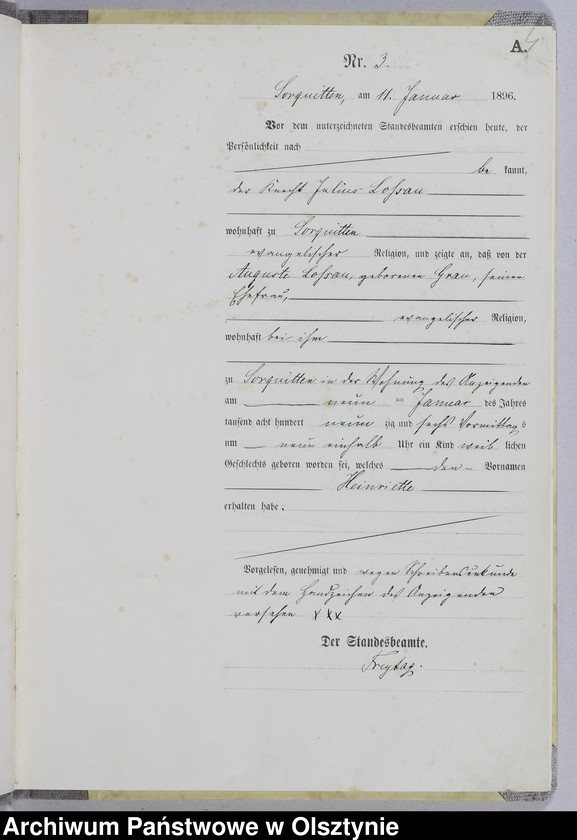 A.
Nr. 3.
Sorquitten, am 11. Januar 1896.
Vor dem unterzeichneten Standesbeamten erschien heute, der
Persönlichkeit nach
be kannt,
der Knecht Julius Lossau
wohnhaft zu Sorquitten
evangelischer Religion, und zeigte an, daß von der
Auguste Lossau, geborenen Grau, seiner
Ehefrau,
evangelischer Religion,
wohnhaft bei ihm
zu Sorquitten in der Wohnung des Anzeigenden
am neun ten Januar des Jahres
tausend acht hundert neun zig und sechs Vormittag s
um neun einhalb Uhr ein Kind weib lichen
Geschlechts geboren worden sei, welches den Vornamen
Heinriette
erhalten habe.
Vorgelesen, genehmigt und wegen Schreibensunkunde
mit dem Handzeichen des Anzeigenden
versehen XXX
Der Standesbeamte.
Freytag.
Archiwum Państwowe w Olsztynie